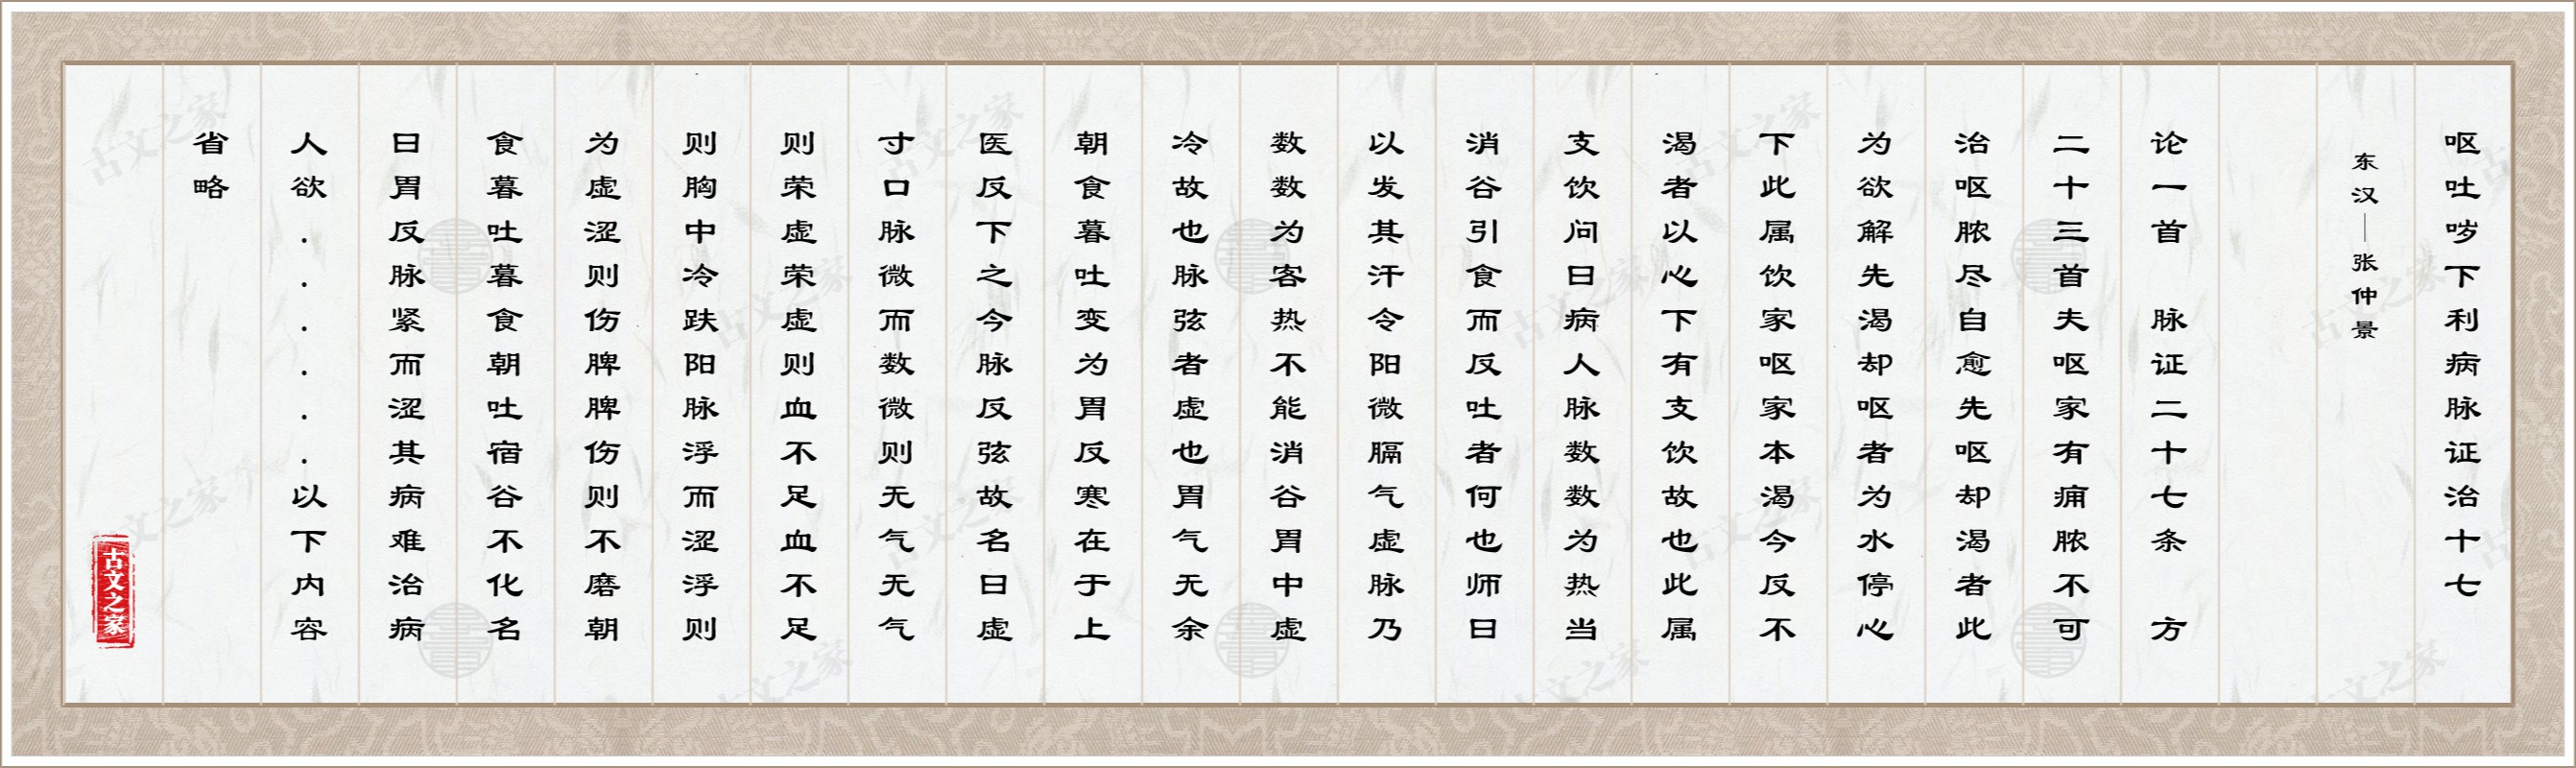 呕吐哕下利病脉证治十七
东汉—张仲景
论一首 脉证二十七条 方
二十三首夫呕家有痈脓不可
治呕脓尽自愈先呕却渴者此
为欲解先渴却呕者为水停心
下此属饮家呕家本渴今反不
渴者以心下有支饮故也此属
支饮问曰病人脉数数为热当
消谷引食而反吐者何也师曰
以发其汗令阳微膈气虚脉乃
数数为客热不能消谷胃中虚
冷故也脉弦者虚也胃气无余
朝食暮吐变为胃反寒在于上
医反下之今脉反弦故名曰虚
寸口脉微而数微则无气无气
则荣虚荣虚则血不足血不足
则胸中冷趺阳脉浮而涩浮则
为虚涩则伤脾脾伤则不磨朝
食暮吐暮食朝吐宿谷不化名
曰胃反脉紧而涩其病难治病
人欲......以下内容
省略
古文之家